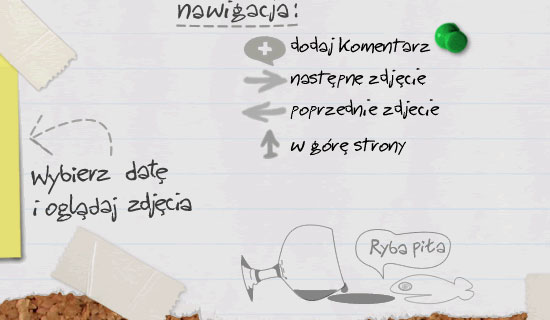 nawigacja:
dodaj komentarz
następne zdjęcie
poprzednie zdjecie
w górę strony
Wybierz datę
i oglądaj zdjęcia
Ryba piła